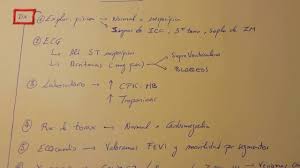 Dx
① Explor. física → Normal o inespecífica
Signos de ICC, 3er tono, Soplo de IM
② ECG
↳ Alt ST inespecífica
↳ Arritmias (muy frec)
Supraventriculares
BLOQUEOS
③ Laboratorio → ↑ CPK-MB
↑ Troponinas
④ Rx de tórax → Normal o Cardiomegalia
⑤ Ecocardio → Valoramos FEVI y movilidad por segmentos